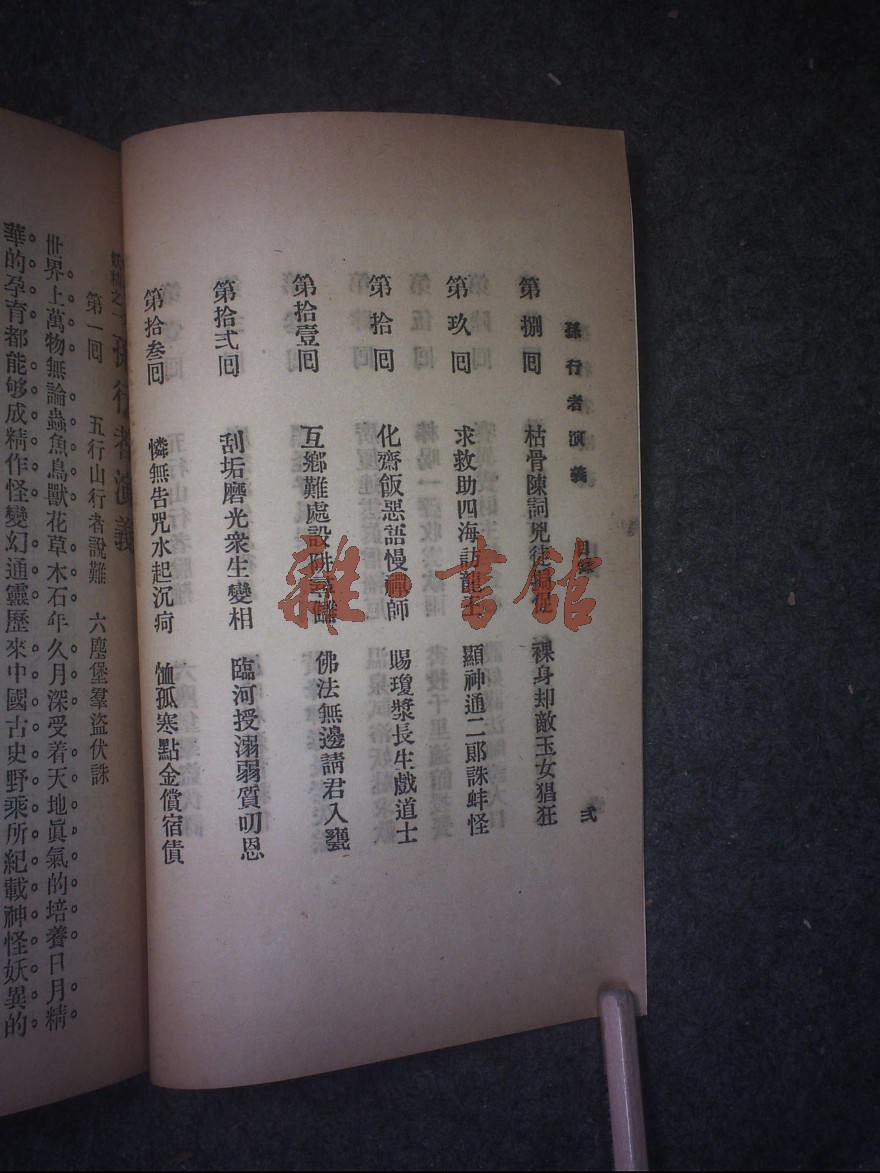 孫行者演義 目錄 弍
第捌囘 枯骨陳詞兇徒 裸身却敵玉女猖狂
第玖囘 求救助四海訪龍王 顯神通二郎誅蚌怪
第拾囘 化齋飯惡語慢禪師 賜瓊漿長生戲道士
第拾壹囘 互鄉難處設阱 佛法無邊請君入甕
第拾弍囘 刮垢磨光衆生變相 臨河授溺弱質叨恩
第拾叁囘 憐無告咒水起沉疴 恤孤寒點金償宿債
雜·書館
孫行者演義
第一囘 五行山行者說難 六塵堡羣盜伏誅
世界上萬物無論蟲魚鳥獸花草木石年久月深受着天地眞氣的培養日月精
華的孕育都能够成精作怪變幻通靈歷來中國古史野乘所紀載神怪妖異的